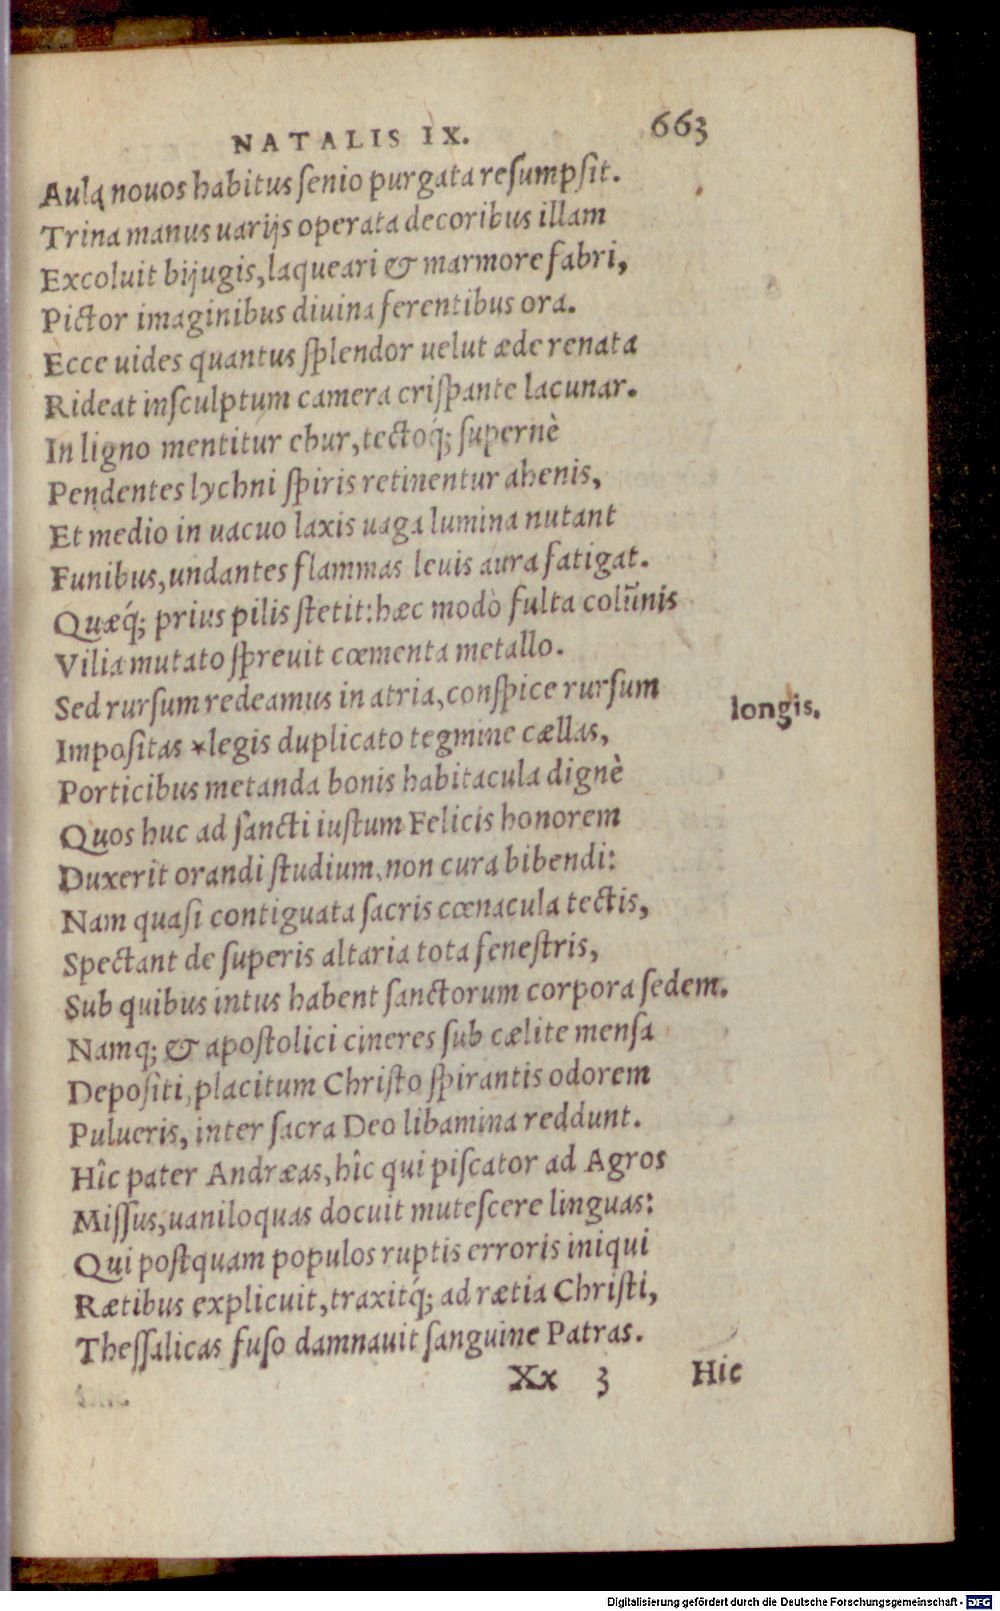 NATALIS IX. 663
Aulą nouos habitus senio purgata resumpsit.
Trina manus uarijs operata decoribus illam
Excoluit bijugis, laqueari & marmore fabri,
Pictor imaginibus diuina ferentibus ora.
Ecce uides quantus splendor uelut æde renata
Rideat insculptum camera crispante lacunar.
In ligno mentitur ebur, tectoq́; supernè
Pendentes lychni spiris retinentur ahenis,
Et medio in uacuo laxis uaga lumina nutant
Funibus, undantes flammas leuis aura fatigat.
Quæq́; prius pilis stetit: hæc modò fulta colūnis
Vilia mutato spreuit cœmenta metallo.
Sed rursum redeamus in atria, conspice rursum
Impositas *legis duplicato tegmine cællas,
longis.
Porticibus metanda bonis habitacula dignè
Quos huc ad sancti iustum Felicis honorem
Duxerit orandi studium, non cura bibendi:
Nam quasi contiguata sacris cœnacula tectis,
Spectant de superis altaria tota fenestris,
Sub quibus intus habent sanctorum corpora sedem.
Namq; & apostolici cineres sub cælite mensa
Depositi, placitum Christo spirantis odorem
Pulueris, inter sacra Deo libamina reddunt.
Hîc pater Andræas, hîc qui piscator ad Agros
Missus, uaniloquas docuit mutescere linguas:
Qui postquam populos ruptis erroris iniqui
Rætibus explicuit, traxitq́; ad rætia Christi,
Thessalicas fuso damnauit sanguine Patras.
Xx 3 Hic
Digitalisierung gefördert durch die Deutsche Forschungsgemeinschaft - DFG